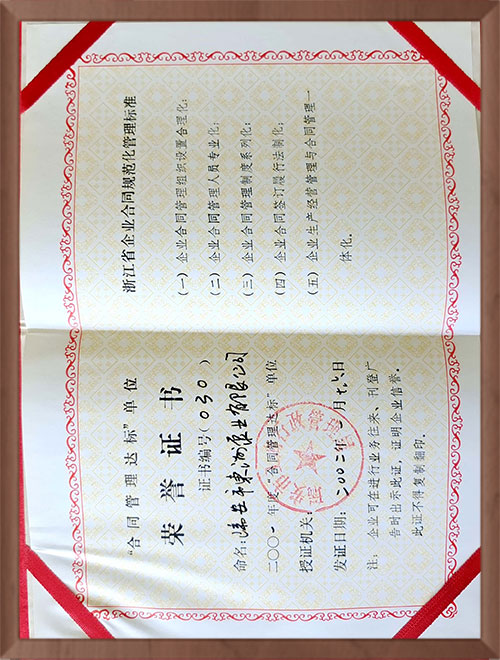 "合同管理达标"单位
荣誉证书
证书编号(030)
命名:安市東 业有限公司
二〇〇一年度"合同管理达标"单位
授证机关:
发证日期:二00二年 月 日
注:企业可在进行业务往来、刊登广
告时出示此证,证明企业信誉。
此证不得复制翻印。
浙江省企业合同规范化管理标准
(一)企业合同管理组织设置合理化;
(二)企业合同管理人员专业化;
(三)企业合同管理制度系列化;
(四)企业合同签订履行法制化;
(五)企业生产经营管理与合同管理一
体化。